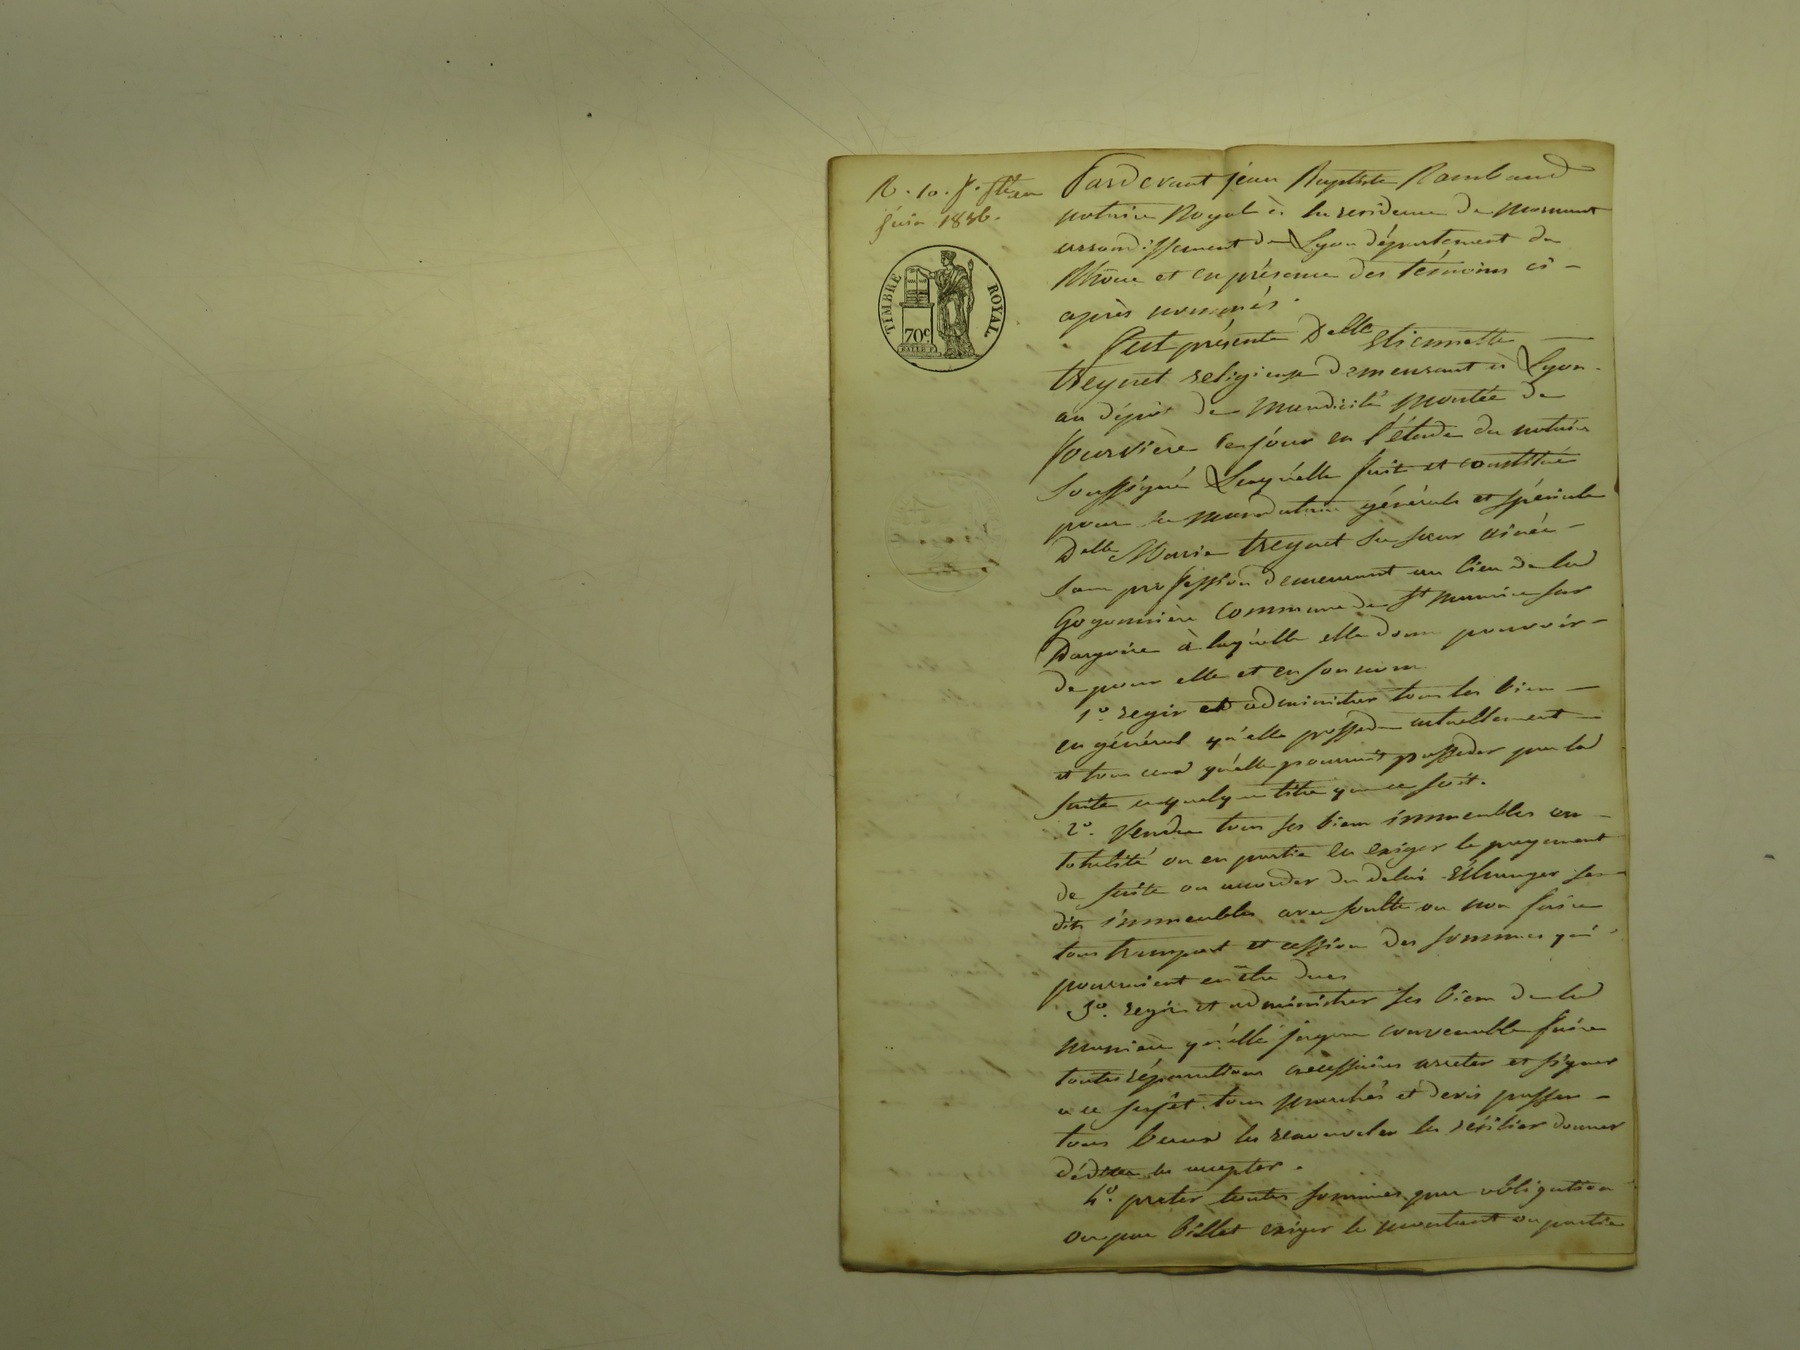 juin 1836.
TIMBRE ROYAL
70c
Pardevant jean Baptiste Rambaud
notaire Royal à la residence de mornant
arrondissement de Lyon département du
Rhône et en présence des témoins ci-
après nommés.
fut présente Delle Etiennette
treynet religieuse demeurant à Lyon
au dépôt de mendicité montée de
fourvière ce jour en l'étude du notaire
soussigné Laquelle fait et constitue
pour sa mandataire générale et spéciale
Delle Marie treynet sa sœur ainée
san profession demeurant au lieu de la
Gogonnière commune de St maurice sur
Dargoire à laquelle elle donne pouvoir
de pour elle et en son nom
1o. regir et administrer tous les biens
en général qu'elle possede actuellement
et tous ceux qu'elle pourrait posseder par la
suite a quelque titre que ce soit.
2o. Vendre tous ses biens immeubles en
totalité ou en partie en exiger le payement
de suite ou accorder du delai Echanger ses
dits immeubles avec soulte ou non faire
tous transport et cession des sommes qui
pourraient en être dues
3o. regir et administrer ses biens de la
maniere qu'elle jugera convenable faire
toutes réparations necessaires arreter et signer
a ce sujet tous marchés et devis passer
tous beaux les renouveler les résilier donner
dédites les accepter.
4o. preter toutes sommes par obligation
ou par billet exiger le montant ou partie